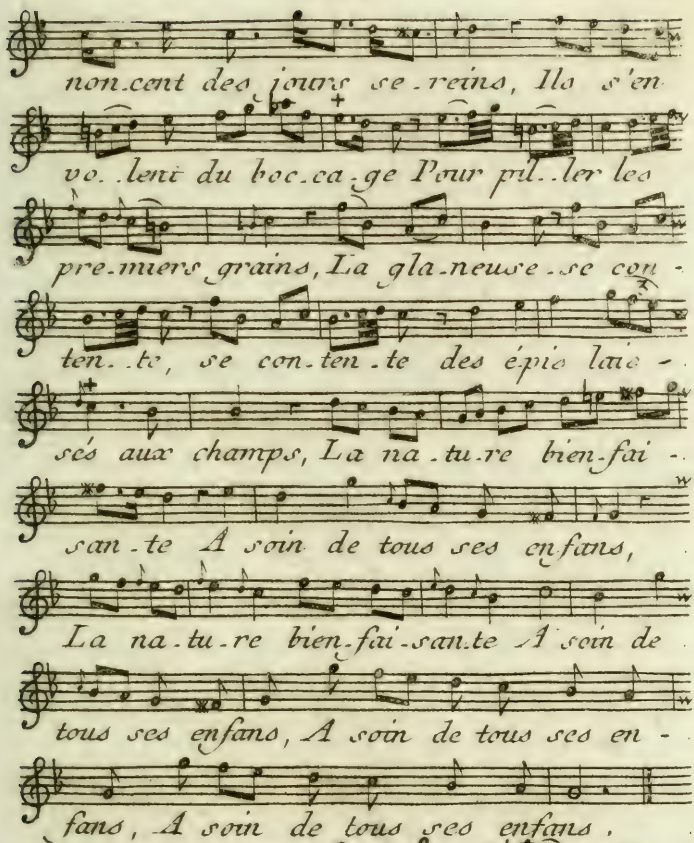 non-cent des jours se-reins, Ils s'en
vo-lent du boc-ca-ge Pour pil-ler les
pre-miers grains, La gla-neuse-se con-
ten-te, se con-ten-te des épis lais-
sés aux champs, La na-tu-re bien-fai-
san-te A soin de tous ses enfans,
La na-tu-re bien-fai-san-te A soin de
tous ses enfans, A soin de tous ses en-
fans, A soin de tous ses enfans.